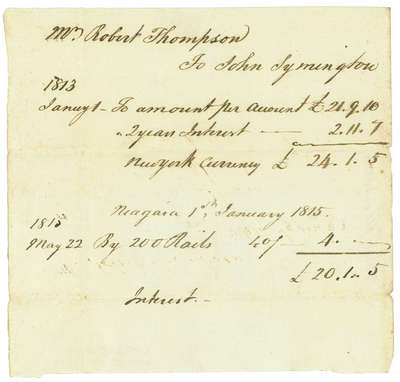 Mr. Robert Thompson
To John Symington
1813
Januy 1 - To amount per account £ 21.9.10
" 2 years Interest — 2.11.7
New York Currency £ 24.1.5
Niagara 1st January 1815.
1815
May 22 By 200 Rails 40/ 4. —
£ 20.1.5
Interest -